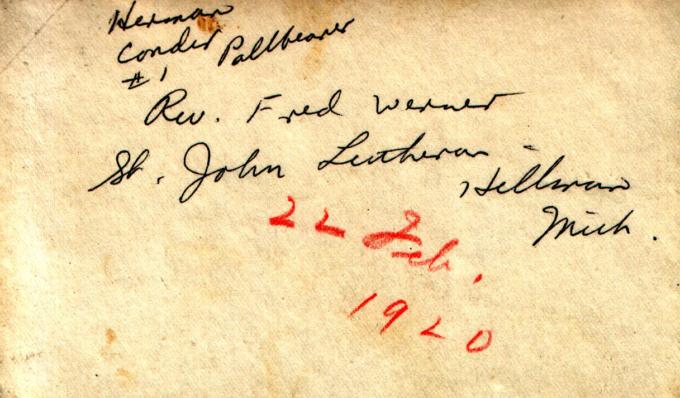 Herman
Conder Pallbearer
#1
Rev. Fred Werner
St. John Lutheran -
Hillman
Mich.
22 Feb.
1920